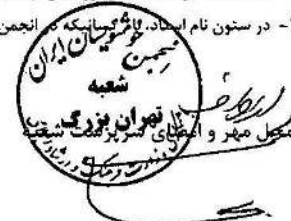 - در ستون نام استاد، نام کسانیکه در انجمن
انجمن خوشنویسان ایران
شعبه
تهران بزرگ
وزارت فرهنگ و ارشاد
محل مهر و امضای سرپرست شعبه